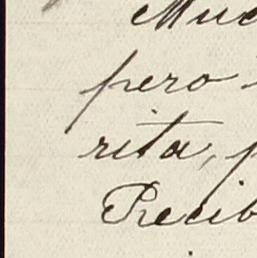 Muc
pero
rita, p
Recib